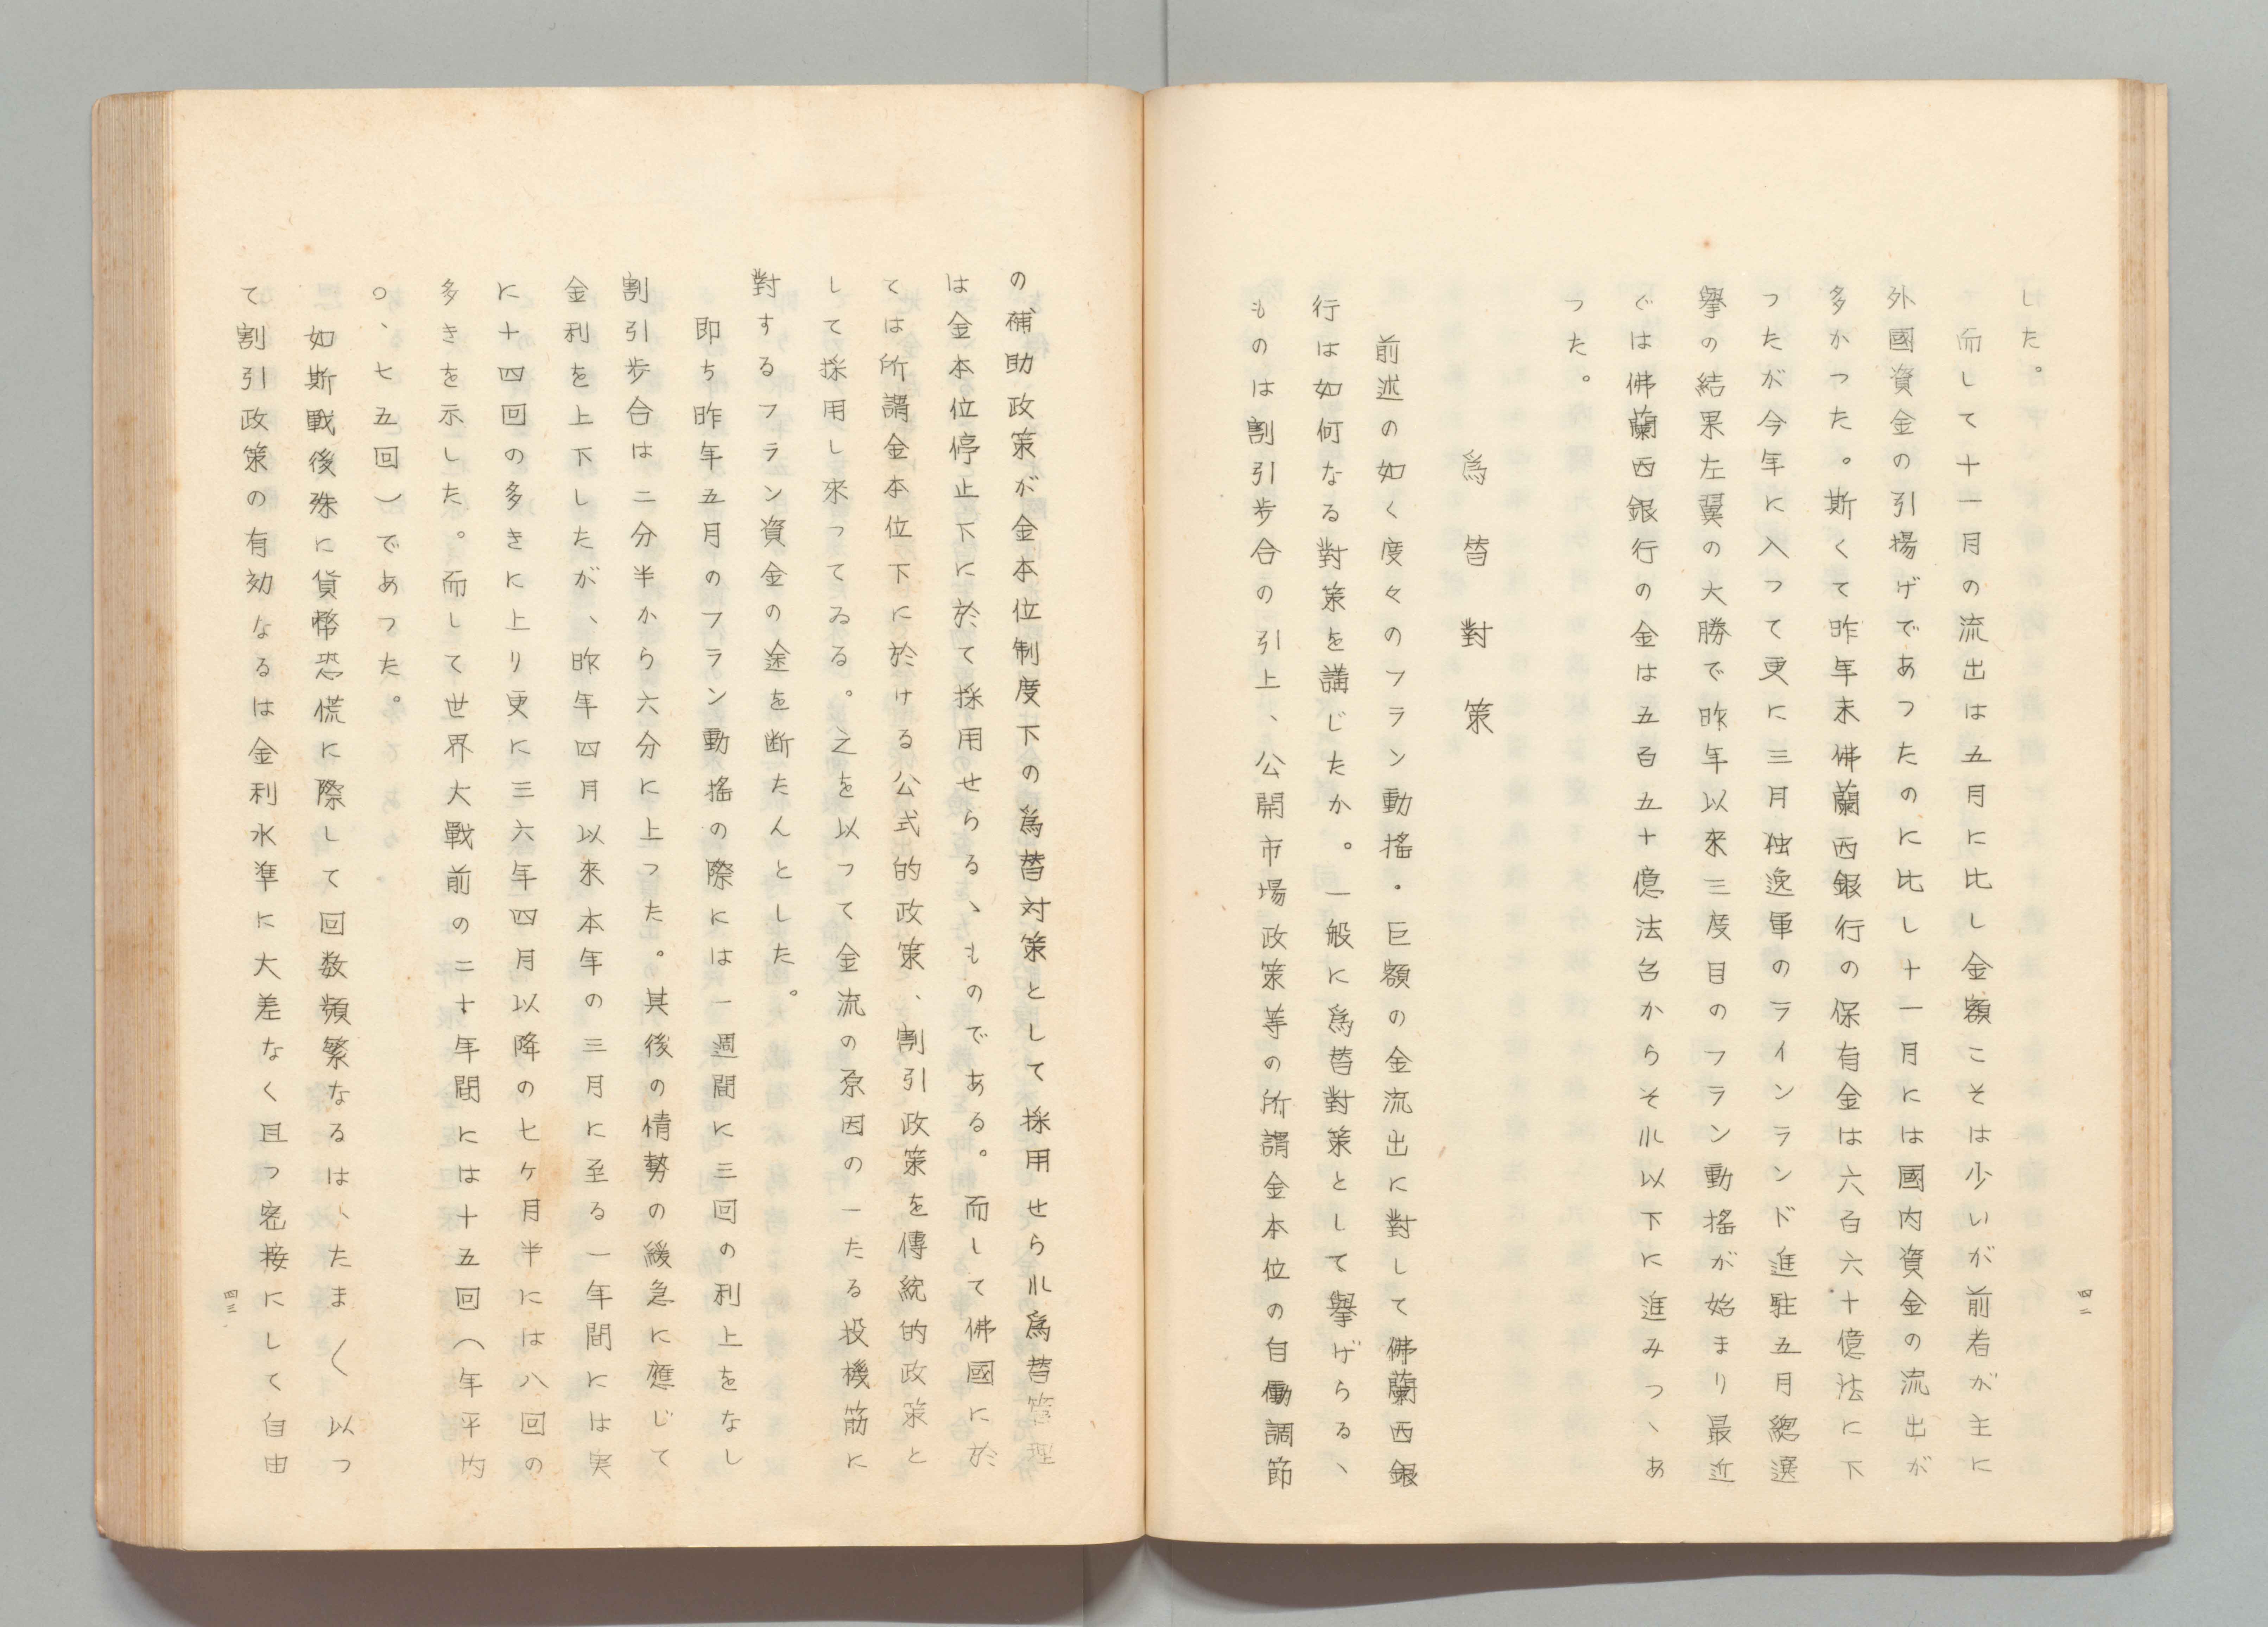 した。
而して十一月の流出は五月に比し金額こそは少いが前者が主に
外國資金の引揚げであつたのに比し十一月には國内資金の流出が
多かつた。斯くて昨年末佛蘭西銀行の保有金は六百六十億法に下
つたが今年に入つて更に三月独逸軍のラインランド進駐五月總選
擧の結果左翼の大勝で昨年以來三度目のフラン動搖が始まり最近
ぐは佛蘭西銀行の金は五百五十億法台からそれ以下に進みつゝあ
つた。
爲替對策
前述の如く度々のフラン動搖・巨額の金流出に對して佛蘭西銀
行は如何なる對策を講じたか。一般に爲替對策として擧げらるゝ
ものは割引歩合の引上、公開市場政策等の所謂金本位の自働調節
四二
の補助政策が金本位制度下の爲替対策として採用せられ爲替管理
は金本位停止下に於て採用せらるゝものである。而して佛國に於
ては所謂金本位下に於ける公式的政策、割引政策を傳統的政策と
して採用し來つてゐる。之を以つて金流の原因の一たる投機筋に
對するフラン資金の途を断たんとした。
即ち昨年五月のフラン動搖の際には一週間に三回の利上をなし
割引歩合は二分半から六分に上つた。其後の情勢の緩急に應じて
金利を上下したが、昨年四月以來本年の三月に至る一年間には実
に十四回の多きに上り更に三六年四月以降の七ケ月半には八回の
多きを示した。而して世界大戰前の二十年間には十五回（年平均
〇、七五回）であつた。
如斯戰後殊に貨幣恐慌に際して回数頻繁なるは、たま〱以つ
て割引政策の有効なるは金利水準に大差なく且つ密接にして自由
四三